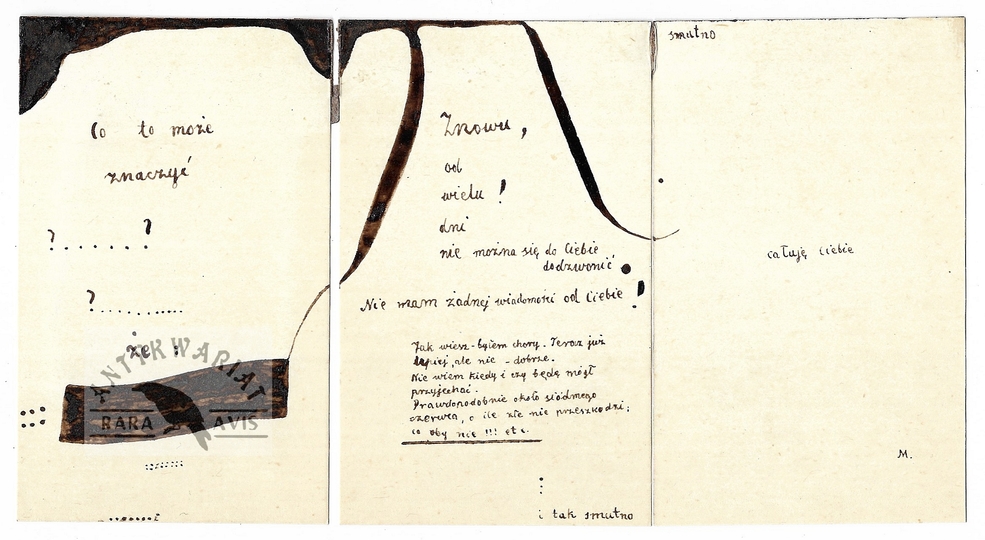 Co to może
znaczyć
? . . . . . . ?
? . . . . . . . . . .
że :
ANTYKWARIAT
RARA AVIS
Znowu,
od
wielu !
dni
nie można się do Ciebie
dodzwonić
Nie mam żadnej wiadomości od Ciebie !
Jak wiesz - byłem chory. Teraz już
lepiej, ale nie - dobrze.
Nie wiem kiedy i czy będę mógł
przyjechać.
Prawdopodobnie około siódmego
czerwca, o ile złe nie przeszkodzi;
co oby nie !!! etc.
i tak smutno
smutno
całuję Ciebie
M.